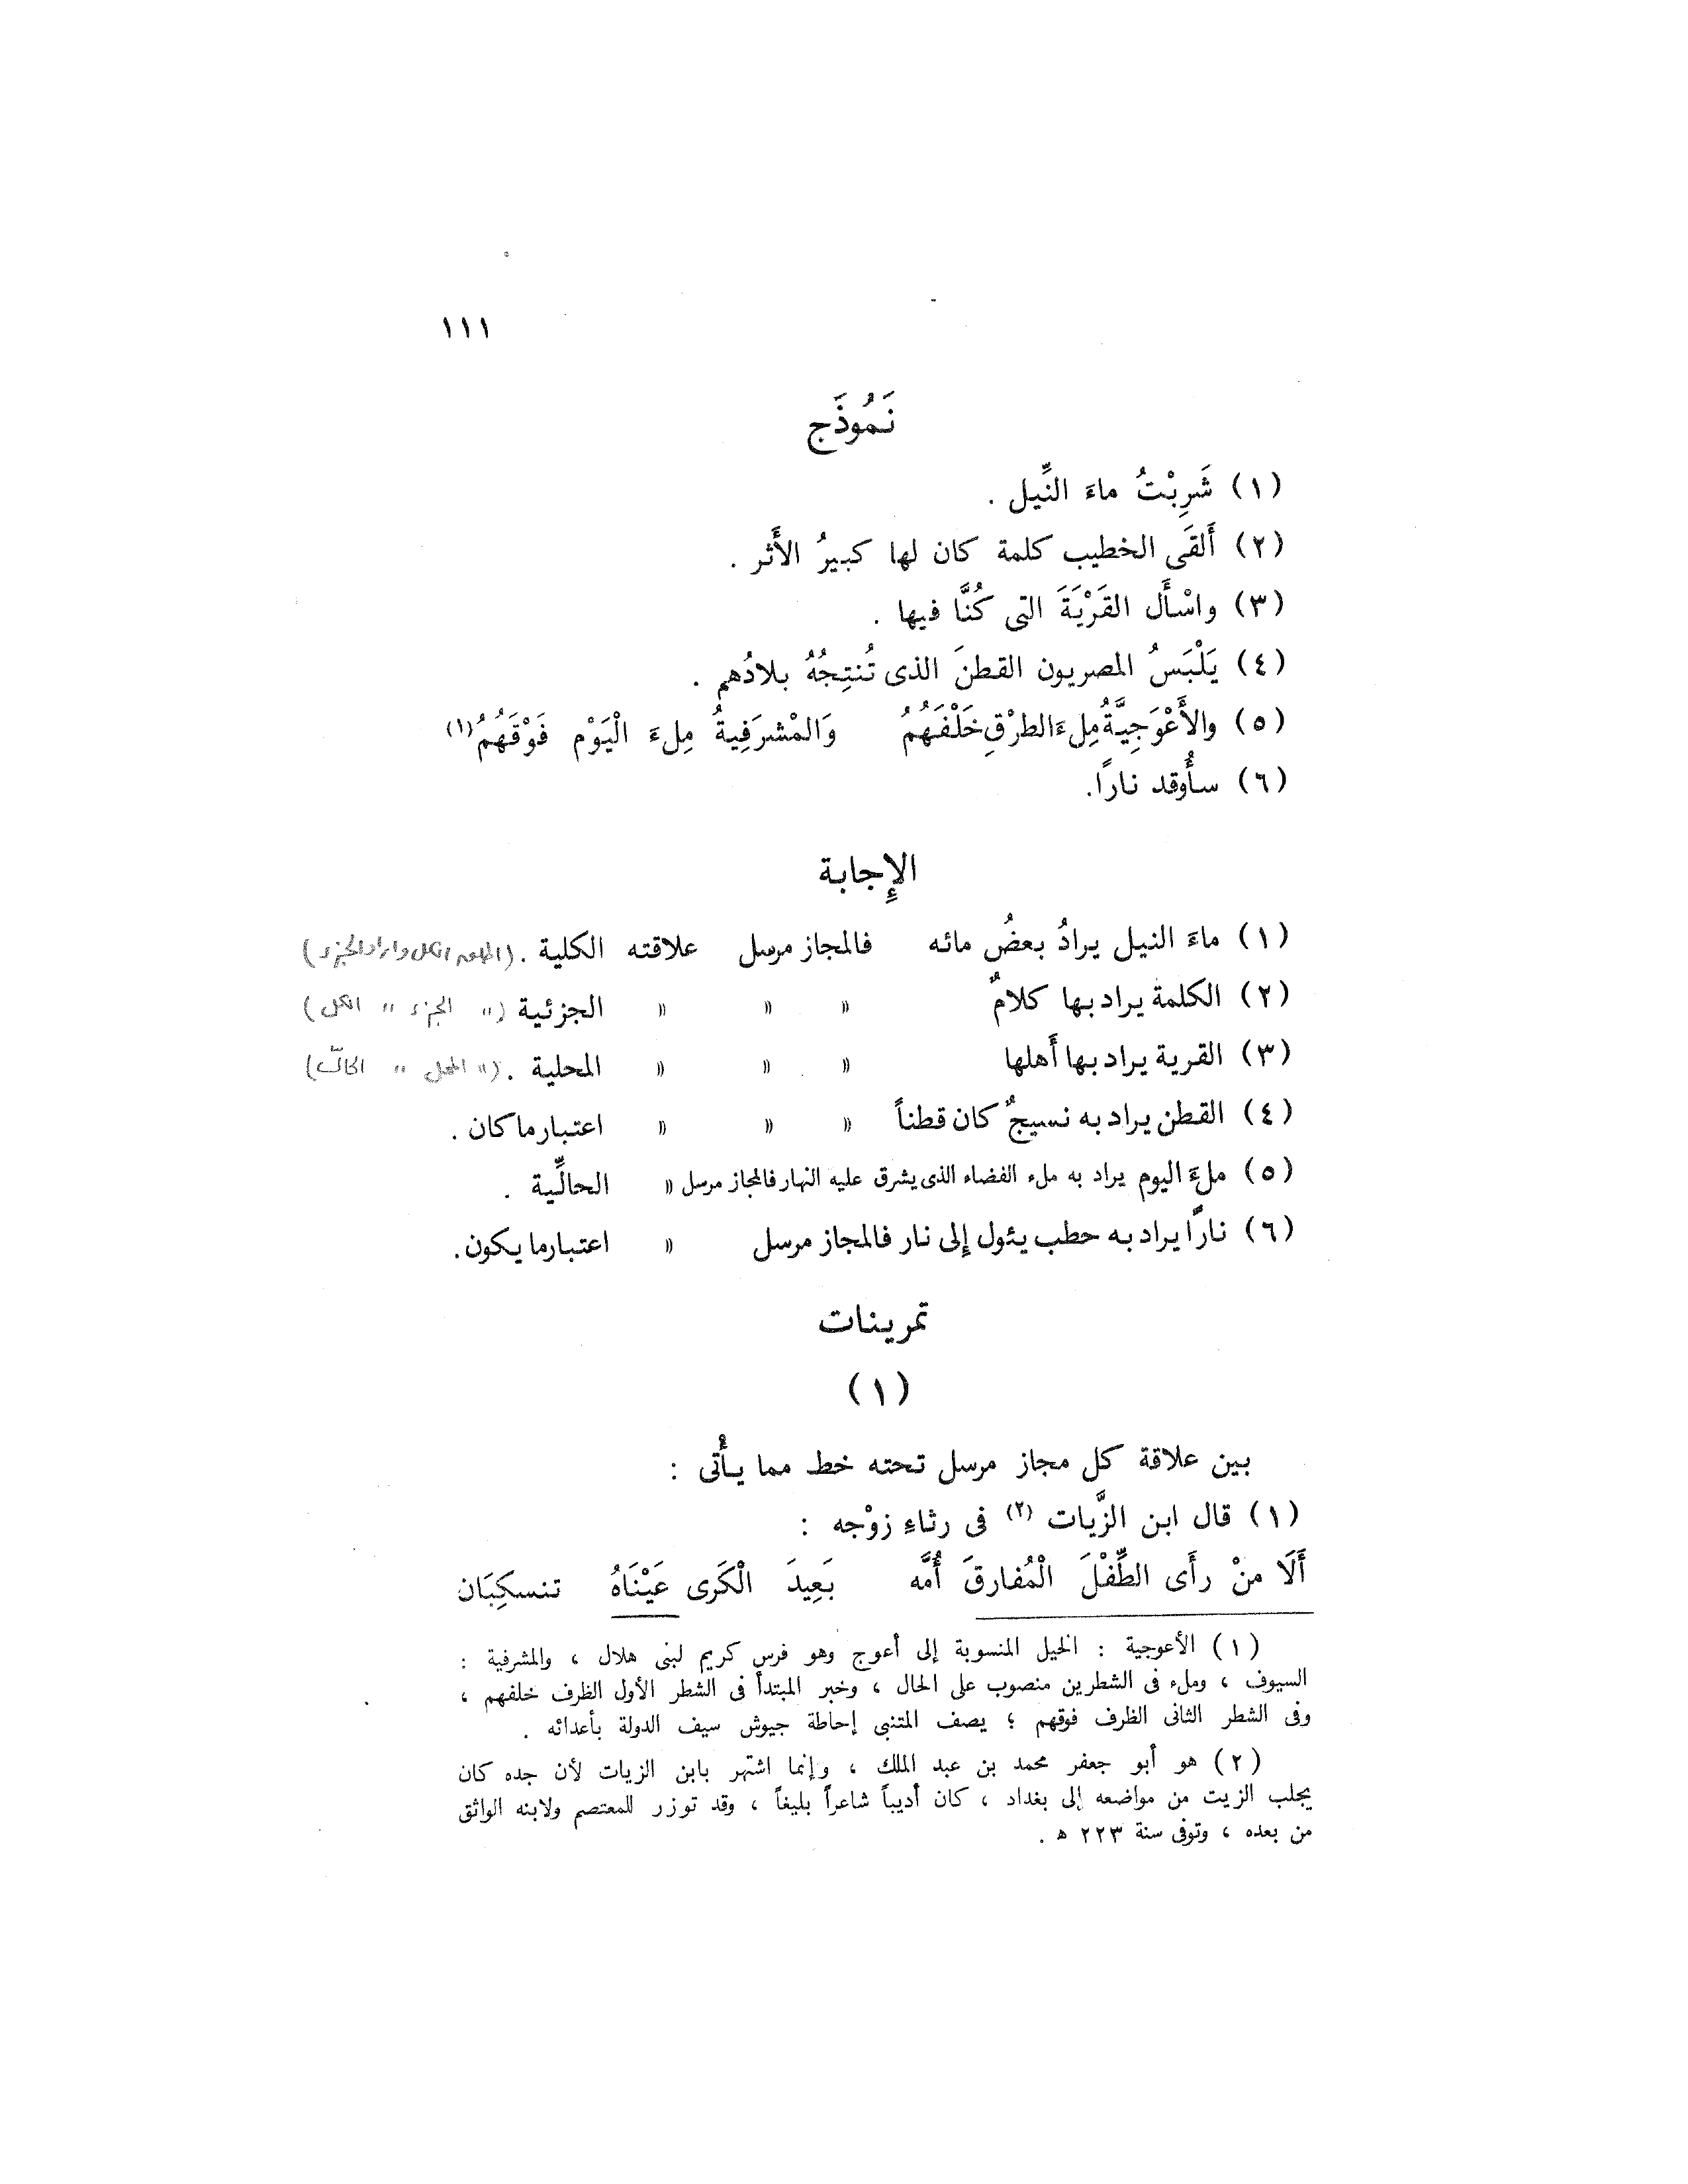 ١١١
نَمُوذَج
(١) شَرِبْتُ ماءَ النِّيل .
(٢) أَلقَى الخطيب كلمة كان لها كبيرُ الأَثر .
(٣) واسْأَل القَرْيَةَ التى كُنَّا فيها .
(٤) يَلْبَسُ المصريون القطنَ الذى تُنتِجُهُ بلادُهم .
(٥) والأَعْوَجِيَّةُ مِلءَ الطرْقِ خَلْفَهُمُ وَالمْشرَفِيةُ مِلءَ الْيَوْم فَوْقَهُمُ (١)
(٦) سأُوقد نارًا.
الإِجابة
(١) ماءَ النيل يرادُ بعضُ مائه فالمجاز مرسل علاقته الكلية . (اطلق الكل واراد الجزء)
(٢) الكلمة يراد بها كلامٌ » » » الجزئية (" الجزء " الكل)
(٣) القرية يراد بها أَهلها » » » المحلية . (" المحل " الحالّ)
(٤) القطن يراد به نسيجٌ كان قطناً » » » اعتبار ما كان .
(٥) ملءَ اليوم يراد به ملء الفضاء الذى يشرق عليه النهار فالمجاز مرسل » الحالِّية .
(٦) نارًا يراد به حطب يئول إِلى نار فالمجاز مرسل » اعتبار ما يكون.
تمرينات
(١)
بين علاقة كل مجاز مرسل تحته خط مما يأْتى :
(١) قال ابن الزَّيات (٢) فى رثاءِ زوْجه :
أَلَا منْ رأَى الطِّفْلَ الْمُفارقَ أُمَّه بَعِيدَ الْكَرى عَيْنَاهُ تنسكِبَان
(١) الأعوجية : الخيل المنسوبة إلى أعوج وهو فرس كريم لبنى هلال ، والمشرفية :
السيوف ، وملء فى الشطرين منصوب على الحال ، وخبر المبتدأ فى الشطر الأول الظرف خلفهم ،
وفى الشطر الثانى الظرف فوقهم ؛ يصف المتنبى إحاطة جيوش سيف الدولة بأعدائه .
(٢) هو أبو جعفر محمد بن عبد الملك ، وإنما اشتهر بابن الزيات لأن جده كان
يجلب الزيت من مواضعه إلى بغداد ، كان أديباً شاعراً بليغاً ، وقد توزر للمعتصم ولابنه الواثق
من بعده ، وتوفى سنة ٢٢٣ ه .